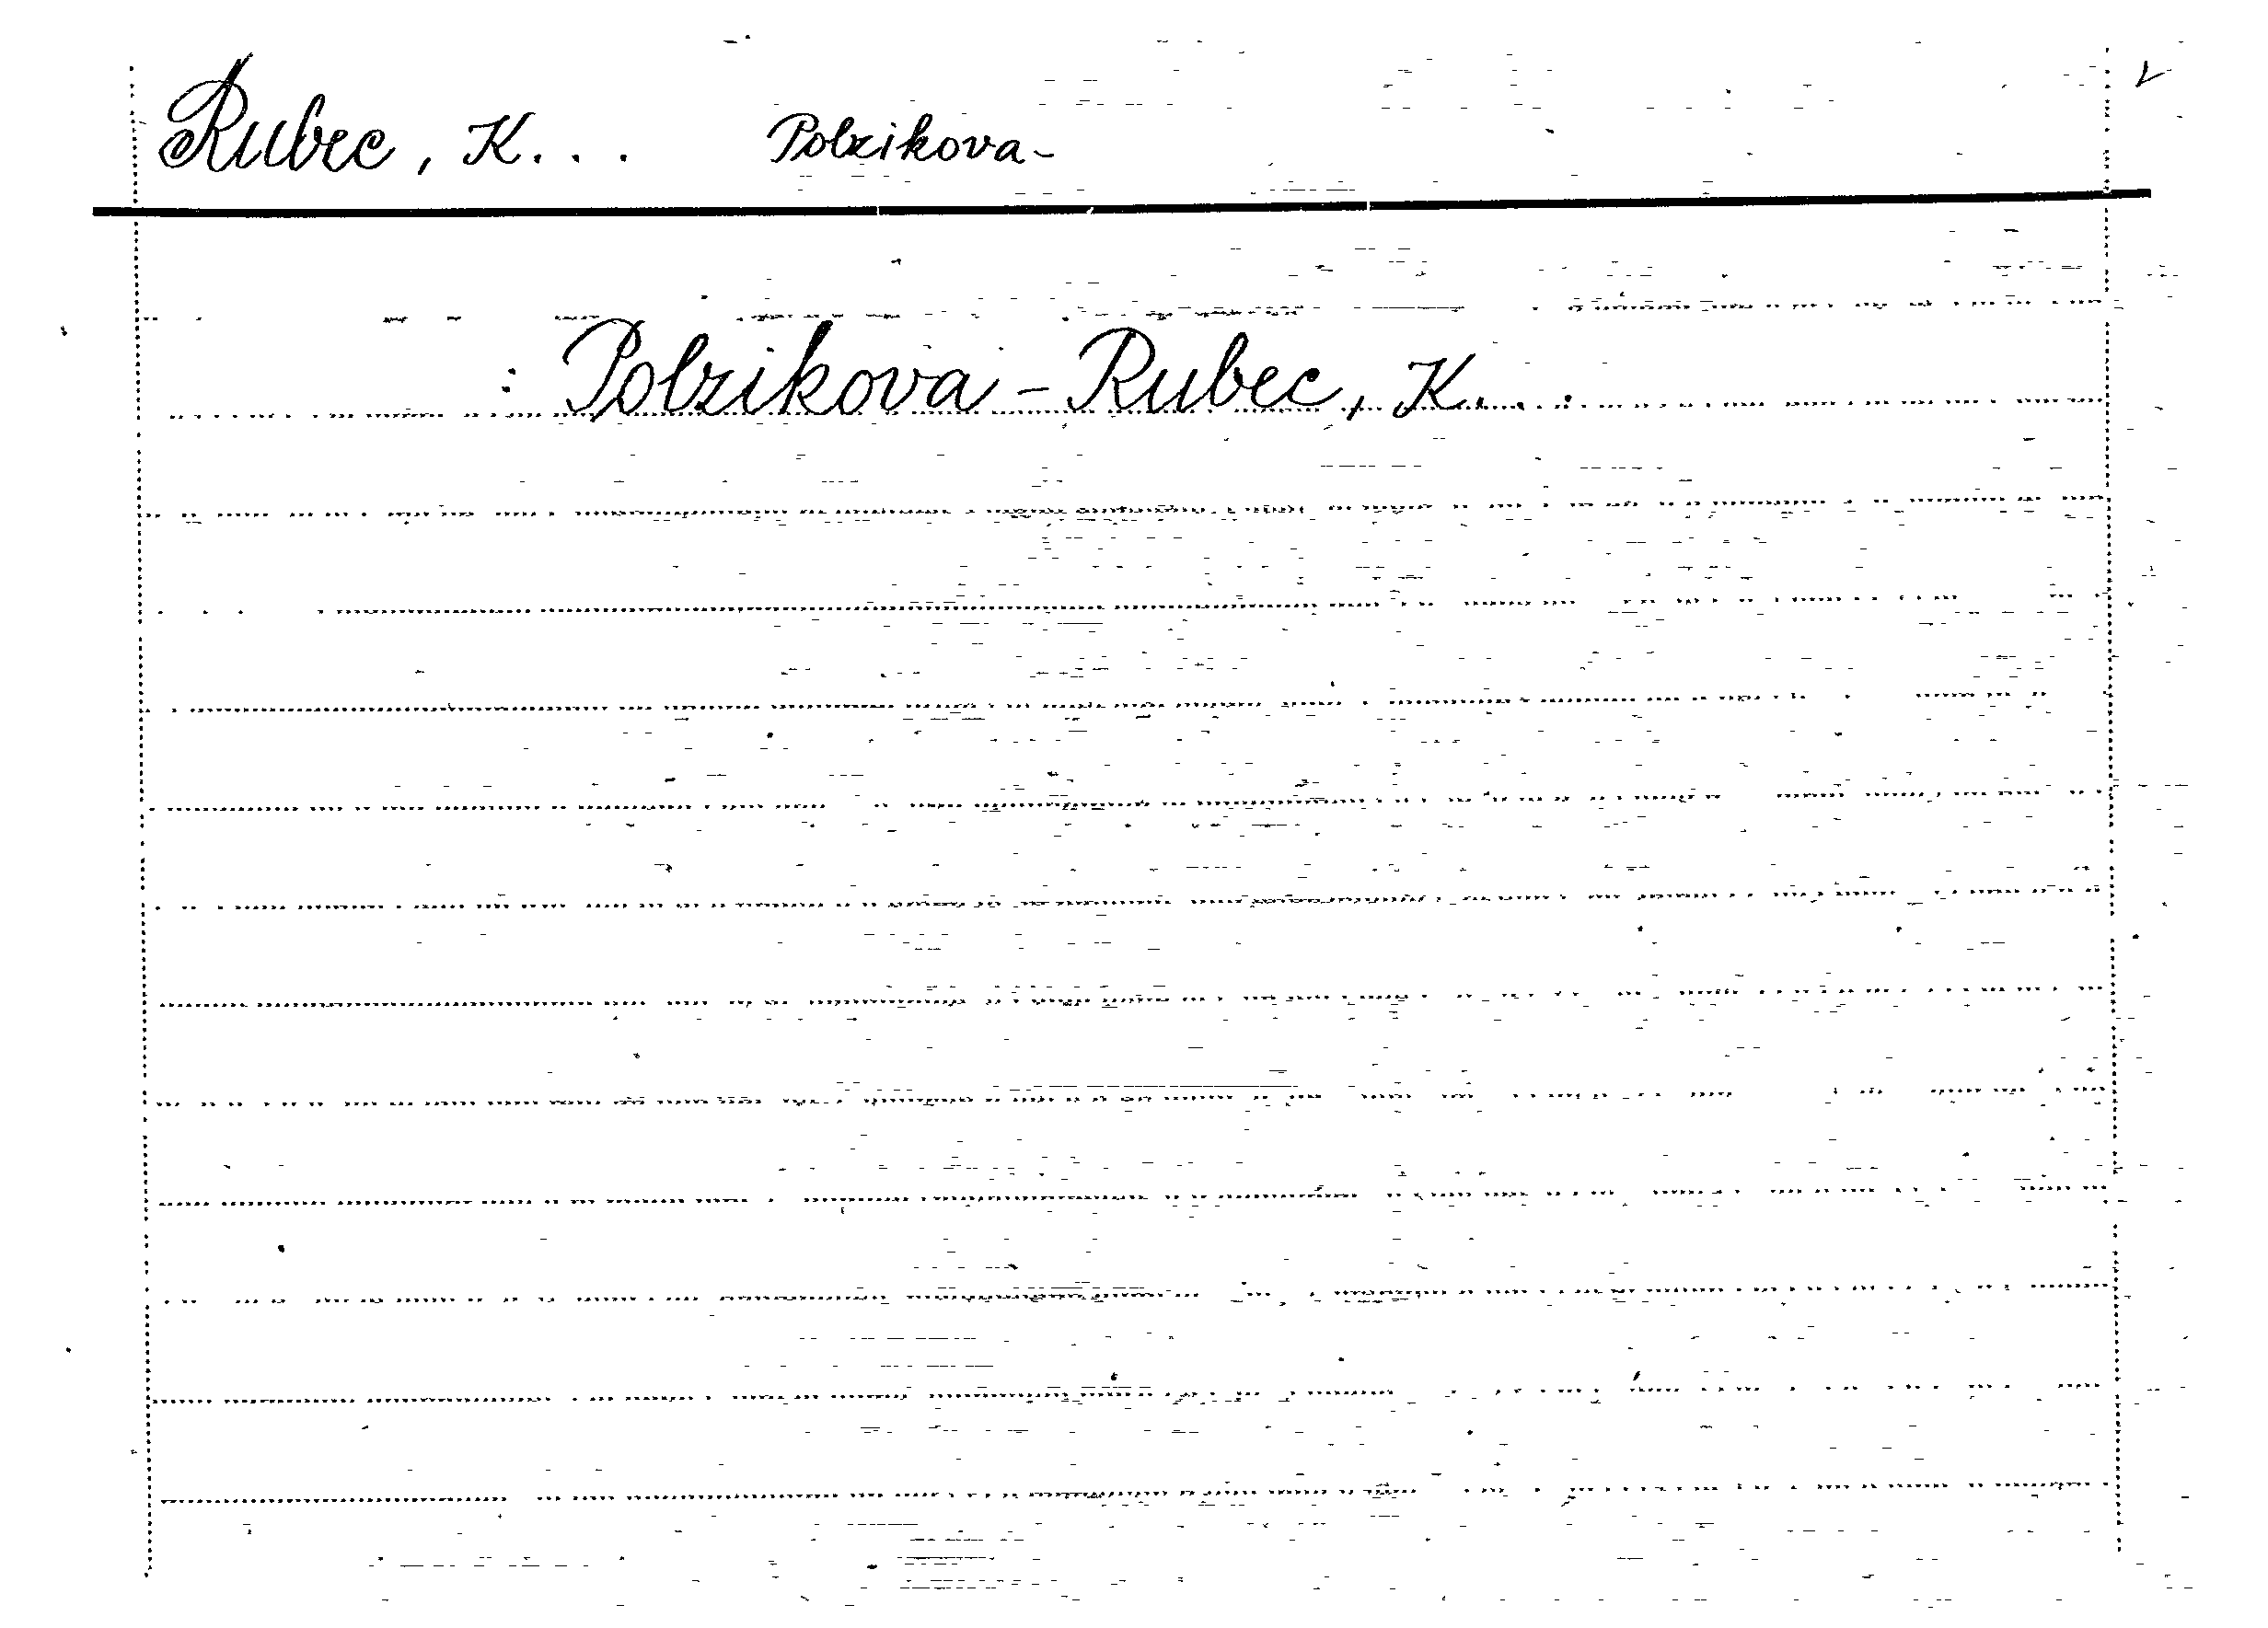 Rubec, K... Polzikova-
: Polzikova-Rubec, K...